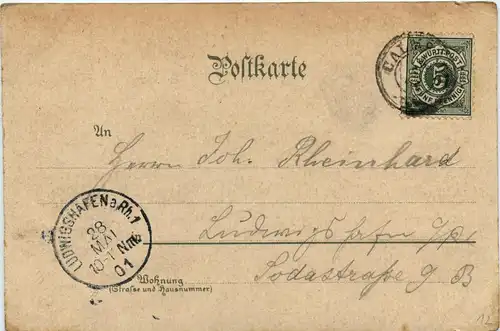 Postkarte
CALW
K.WÜRTT.POST
5
FÜNF PFENNIG
An
Herrn Joh. Rheinhard
Ludwigshafen a/Rh.
Sodastraße 9 B
LUDWIGSHAFEN a Rh. 1
28
MAI
10-1 Nm.
01
Wohnung
(Strasse und Hausnummer)
12